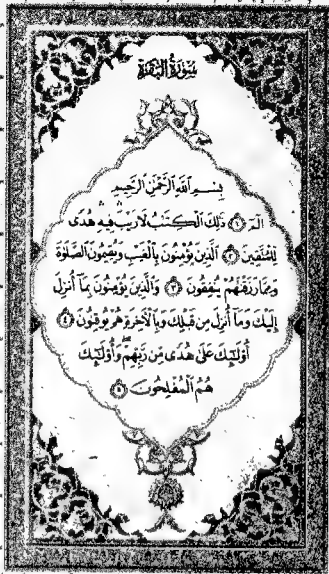 سُورَةُ البَقَرَةِ
بِسْمِ ٱللَّهِ ٱلرَّحْمَٰنِ ٱلرَّحِيمِ
الٓمٓ ١ ذَٰلِكَ ٱلْكِتَٰبُ لَا رَيْبَ فِيهِ هُدًى
لِلْمُتَّقِينَ ٢ ٱلَّذِينَ يُؤْمِنُونَ بِٱلْغَيْبِ وَيُقِيمُونَ ٱلصَّلَوٰةَ
وَمِمَّا رَزَقْنَٰهُمْ يُنفِقُونَ ٣ وَٱلَّذِينَ يُؤْمِنُونَ بِمَآ أُنزِلَ
إِلَيْكَ وَمَآ أُنزِلَ مِن قَبْلِكَ وَبِٱلْآخِرَةِ هُمْ يُوقِنُونَ ٤
أُو۟لَٰٓئِكَ عَلَىٰ هُدًى مِّن رَّبِّهِمْ وَأُو۟لَٰٓئِكَ
هُمُ ٱلْمُفْلِحُونَ ٥